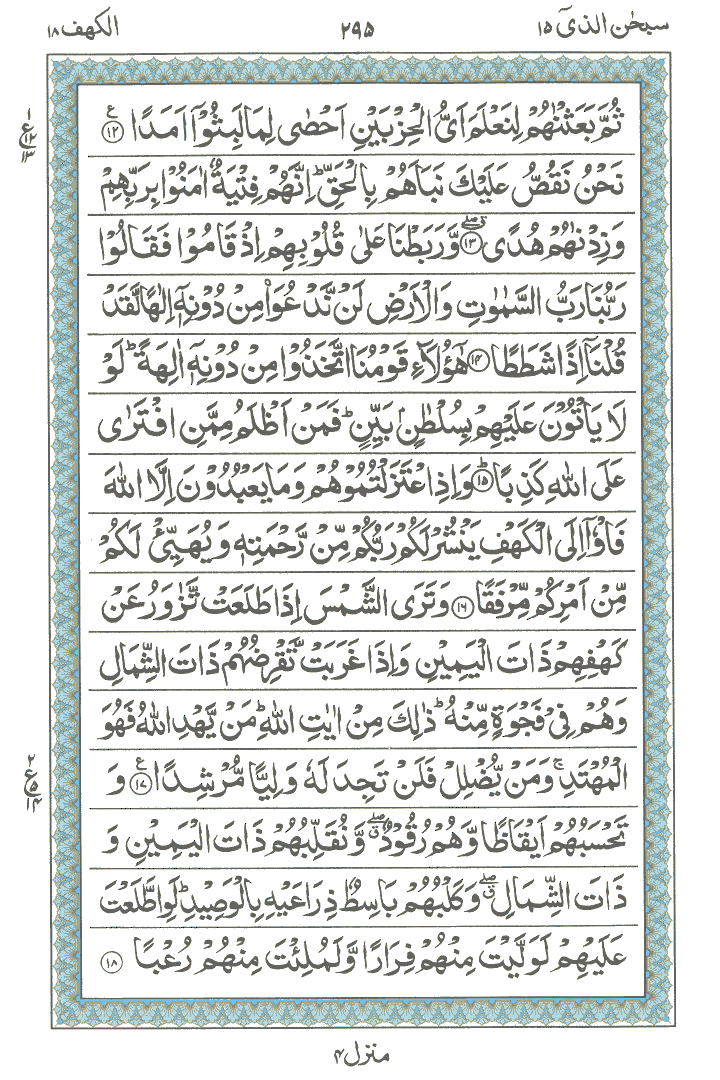 سبحٰن الذیٓ ۱۵
۲۹۵
الکهف ۱۸
ثُمَّ بَعَثْنٰهُمْ لِنَعْلَمَ اَیُّ الْحِزْبَیْنِ اَحْصٰى لِمَا لَبِثُوْۤا اَمَدًا ۧ﴿۱۲﴾
نَحْنُ نَقُصُّ عَلَیْكَ نَبَاَهُمْ بِالْحَقِّ ؕ اِنَّهُمْ فِتْیَةٌ اٰمَنُوْا بِرَبِّهِمْ
وَ زِدْنٰهُمْ هُدًى ۖۗ﴿۱۳﴾ وَّ رَبَطْنَا عَلٰى قُلُوْبِهِمْ اِذْ قَامُوْا فَقَالُوْا
رَبُّنَا رَبُّ السَّمٰوٰتِ وَ الْاَرْضِ لَنْ نَّدْعُوَاۡ مِنْ دُوْنِهٖۤ اِلٰهًا لَّقَدْ
قُلْنَاۤ اِذًا شَطَطًا ﴿۱۴﴾ هٰۤؤُلَآءِ قَوْمُنَا اتَّخَذُوْا مِنْ دُوْنِهٖۤ اٰلِهَةً ؕ لَوْ
لَا یَاْتُوْنَ عَلَیْهِمْ بِسُلْطٰنٍۭ بَیِّنٍ ؕ فَمَنْ اَظْلَمُ مِمَّنِ افْتَرٰى
عَلَى اللّٰهِ كَذِبًا ؕ﴿۱۵﴾ وَ اِذِ اعْتَزَلْتُمُوْهُمْ وَ مَا یَعْبُدُوْنَ اِلَّا اللّٰهَ
فَاْوٗۤا اِلَى الْكَهْفِ یَنْشُرْ لَكُمْ رَبُّكُمْ مِّنْ رَّحْمَتِهٖ وَ یُهَیِّئْ لَكُمْ
مِّنْ اَمْرِكُمْ مِّرْفَقًا ﴿۱۶﴾ وَ تَرَى الشَّمْسَ اِذَا طَلَعَتْ تَّزٰوَرُ عَنْ
كَهْفِهِمْ ذَاتَ الْیَمِیْنِ وَ اِذَا غَرَبَتْ تَّقْرِضُهُمْ ذَاتَ الشِّمَالِ
وَ هُمْ فِیْ فَجْوَةٍ مِّنْهُ ؕ ذٰلِكَ مِنْ اٰیٰتِ اللّٰهِ ؕ مَنْ یَّهْدِ اللّٰهُ فَهُوَ
الْمُهْتَدِ ۚ وَ مَنْ یُّضْلِلْ فَلَنْ تَجِدَ لَهٗ وَلِیًّا مُّرْشِدًا ۧ﴿۱۷﴾ وَ
تَحْسَبُهُمْ اَیْقَاظًا وَّ هُمْ رُقُوْدٌ ۖۗ وَّ نُقَلِّبُهُمْ ذَاتَ الْیَمِیْنِ وَ
ذَاتَ الشِّمَالِ ۖۗ وَ كَلْبُهُمْ بَاسِطٌ ذِرَاعَیْهِ بِالْوَصِیْدِ ؕ لَوِ اطَّلَعْتَ
عَلَیْهِمْ لَوَلَّیْتَ مِنْهُمْ فِرَارًا وَّ لَمُلِئْتَ مِنْهُمْ رُعْبًا ﴿۱۸﴾
۱
ع
۱۲
۱۳
۲
ع
۵
۱۴
منزل ۴